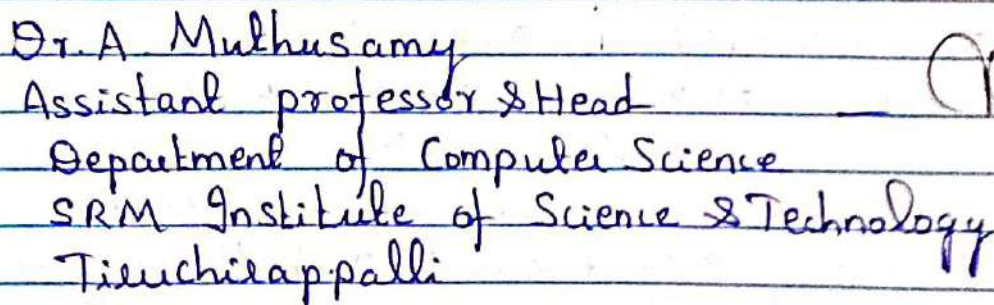 Dr. A Muthusamy
Assistant professor & Head
Department of Computer Science
SRM Institute of Science & Technology
Tiruchirappalli